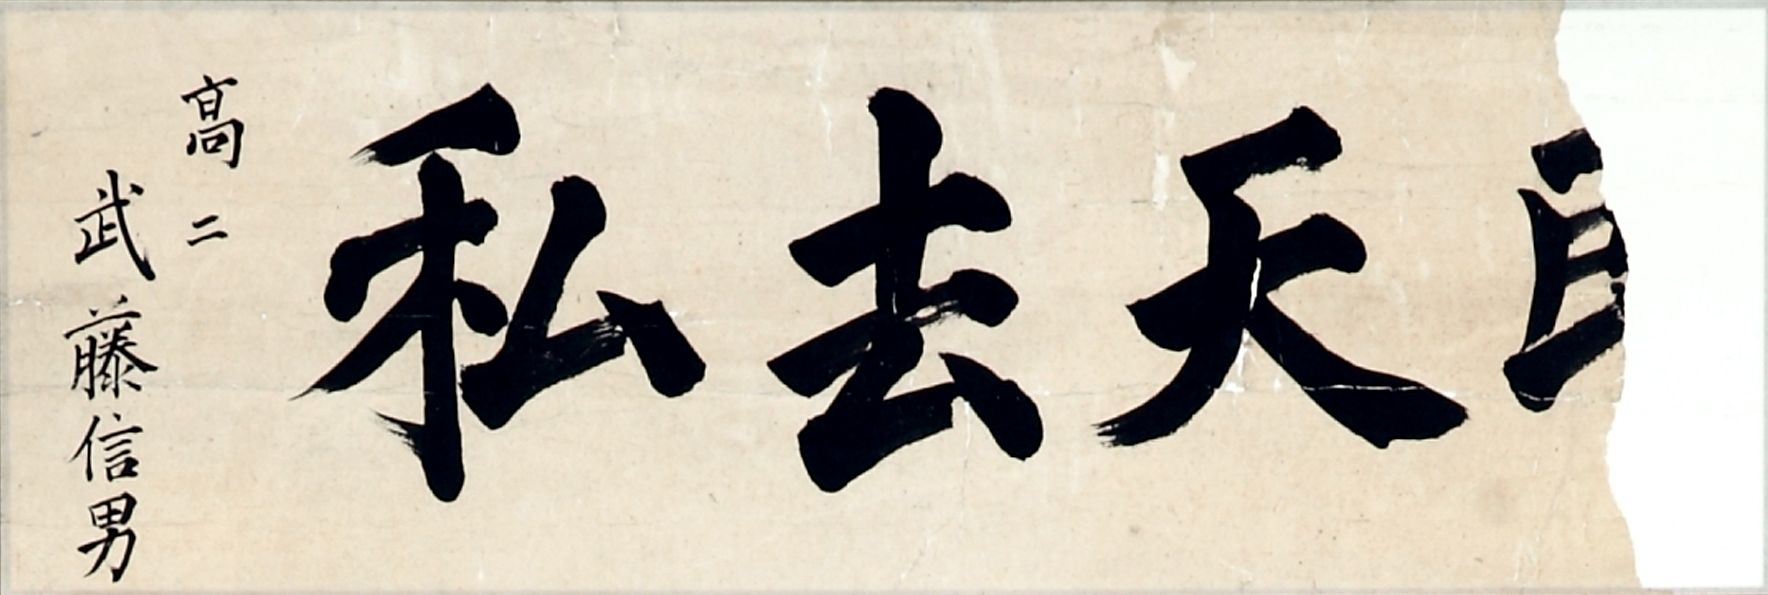 天去私
高二
武藤信男